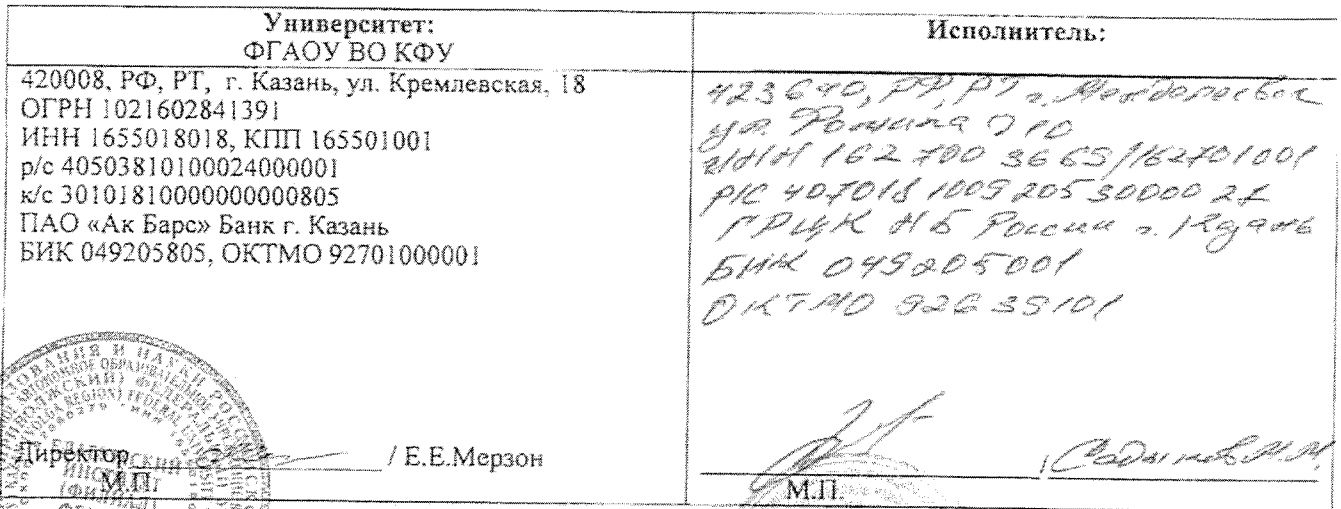 Университет:
ФГАОУ ВО КФУ
420008, РФ, РТ, г. Казань, ул. Кремлевская, 18
ОГРН 1021602841391
ИНН 1655018018, КПП 165501001
р/с 40503810100024000001
к/с 30101810000000000805
ПАО «Ак Барс» Банк г. Казань
БИК 049205805, ОКТМО 92701000001
Директор / Е.Е.Мерзон
М.П.
Исполнитель:
423640, РФ, РТ г. Менделеевск
ул. Фомина
ИНН 1627003665/162701001
р/с 40701810092053000027
ГРЦК НБ России г. Казань
БИК 049205001
ОКТМО 92639101
/ Садыков М.М.
М.П.